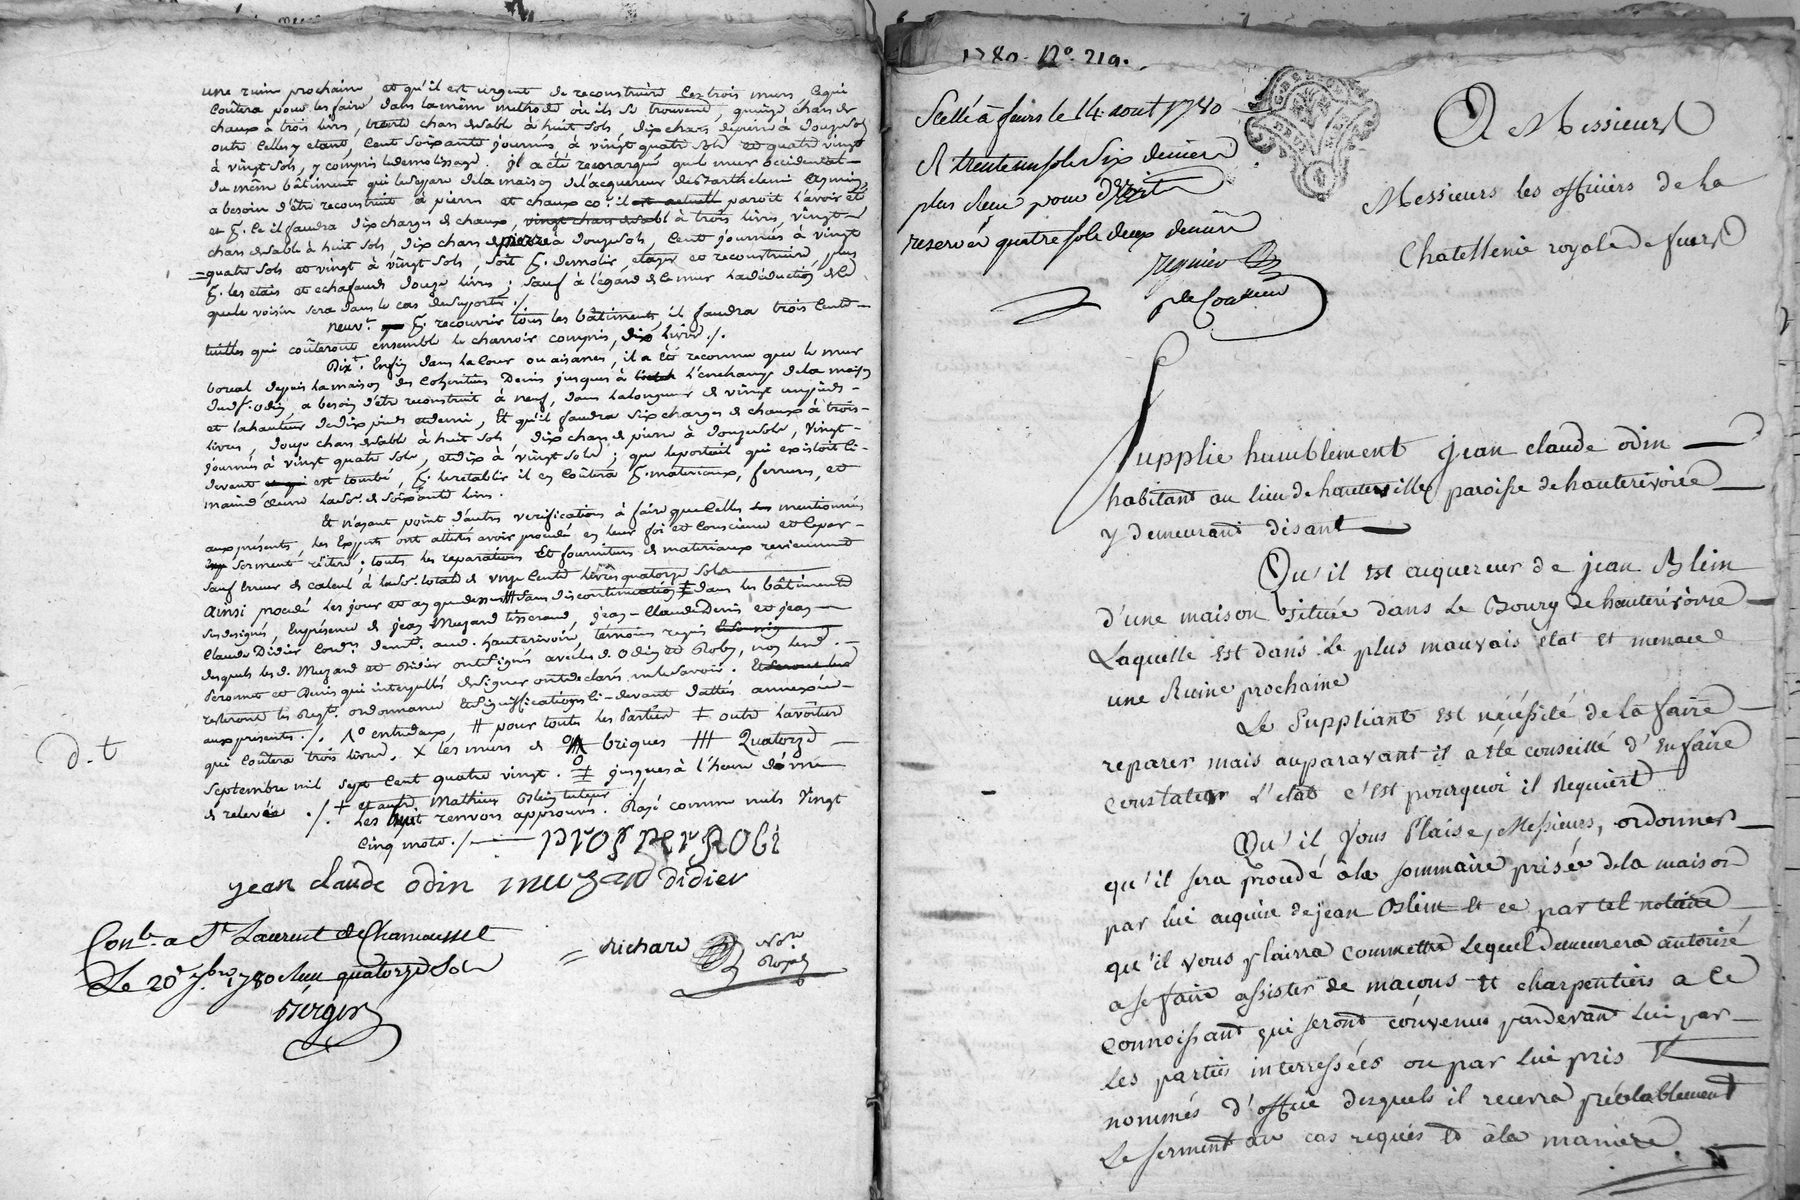 une ruin prochaine, et qu'il est urgent de reconstruire les trois murs ce qui
coûtera pour les faire dans la même methode où ils se trouvent, quinze chars de
chaux à trois livres, trente chars de sable à huit sols, dix chars de pierre à douze sols
outre celles y etant, cent soixante journées, à vingt quatre sols et quatre vingt
à vingt sols, y compris le demolissage. il a été remarqué que le mur occidental
du même bâtiment qui le separe de la maison de l'acquereur de Barthelemi
a besoin d'être reconstruit à pierre et chaux co. il est paroit l'avoir été
et p. ce il faudra dix charges de chaux, vingt chars de sable à trois livres, vingt
chars de sable à huit sols, dix chars de pierre à douze sols, cent journées à vingt
quatre sols et vingt à vingt sols, soit p. demolir, etayer et reconstruire, plus
p. les etais et echafauds douze livres; sauf à l'égard de ce mur la déduction de ce
que le voisin sera dans le cas de suporter ./.
neuv.t p. recouvrir tous les bâtiments, il faudra trois cents
tuilles qui coûteront ensemble le charroir compris, dix livres ./.
Dix.t Enfin dans la cour ou aisances, il a été reconnu que le mur
boreal depuis la maison des cohéritiers Denis jusques à l'enchamp de la maison
dud. s. odin, a besoin d'être reconstruit à neuf, dans la longueur de vingt un pieds
et la hauteur de dix pieds et demi, Et qu'il faudra six charges de chaux à trois
livres, douze chars de sable à huit sols, dix chars de pierre à douze sols, vingt
journées à vingt quatre sols, et dix à vingt sols; que le portail qui existoit ci-
devant est tombé, p. le retablir il en coûtera p. materiaux, ferrures, et
main d'œuvre la so. de soixante livres.
Et n'ayant point d'autres verifications à faire que celles mentionnées
aux présents, les Experts ont attesté avoir procédé en leur foi et conscience et le par
serment réitéré; touts les reparations Et fournitures de materiaux reviennent
sauf erreur de calcul à la so. totale de cents livres quatorze sols
Ainsi procédé les jour et an que dessus sans discontinuation dans les bâtiments
designés, En présence de jean Muzard tisserand, jean-Claude Denis et jean
Claude Didier cord.r dem.t aud. hauterivoire témoins requis
desquels les d. Muzard et Didier ont signés avec les d. Odin et Roby, non led.
Peronnet et Denis qui interpellés de signer ont declarés ne le savoir.
resteront les Req.te ordonnance Et Significations ci-devant dattées annexées
aux présents ./. 1° entr'eux, # pour touts les parties ‡ outre la voiture
qui coutera trois livres, X les murs de briques Quatorze
Septembre mil sept cent quatre vingt. jusques à l'heure
de relevée ./. + et aud. Mathieu Blein tuteur
Les huit renvois approuvés. Rayé comme nuls Vingt
cinq mots ./.
d.t
prosper Robi
jean claude odin muzard didier
Con.lé a S.t Laurent de Chamousset
Le 20 7bre 1780 Reçu quatorze Sols
Berger
richard No.re Royal
1780. N° 219.
Scellé à feurs le 14 aout 1780
R trente un sols six deniers
plus reçu pour droits
reservés quatre sols deux deniers
A Messieurs
Messieurs les officiers de la
Chatellenie royale de feurs
Supplie humblement jean claude odin
habitant au lieu de hauteville paroisse de hauterivoire
y demeurant disant
Qu'il est acquereur de jean Blein
d'une maison située dans le Bourg de hauterivoire
Laquelle est dans le plus mauvais état et menace
une Ruine prochaine
Le Suppliant est nécéssité de la faire
reparer mais auparavant il a été conseillé d'en faire
constater l'etat c'est pourquoi il Requiert
Qu'il Vous Plaise, Messieurs, ordonner
qu'il sera procédé à la sommaire prisée de la maison
par lui acquise de jean Blein Et ce par tel notaire
qu'il vous plairra commettre Lequel demeurera autorisé
a se faire assister de maçons et charpentiers a ce
connoissant qui seront convenus pardevant lui par
les parties interressées ou par lui pris Et
nommés d'office desquels il recevra préalablement
le serment au cas requis Et à la maniere